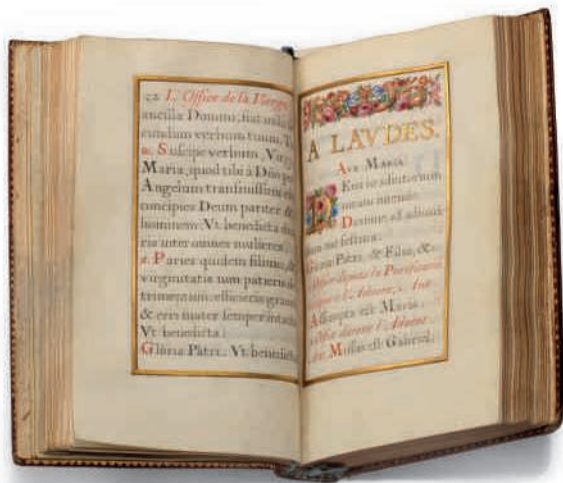 22 L'Office de la Vierge
ancilla Domini, fiat mihi
cundum verbum tuum.
Suscipe verbum, Virgo
Maria, quod tibi à Dño per
Angelum transmissum est
concipies Deum pariter &
hominem: Vt benedicta
ris inter omnes mulieres.
Paries quidem filium, &
virginitatis non patieris de
trimentum: efficieris graui
& eris mater semper intacta
Vt benedicta.
Glória Patri. Vt benedicta
A LAVDES.
AVE MARIA
in adiutorium
meum intende.
Domine ad adiuuan
dum me festina.
Gloria Patri, & Filio, &c.
la Purification
Assumpta est Maria.
durant l'Advent
Missus est Gabriel.